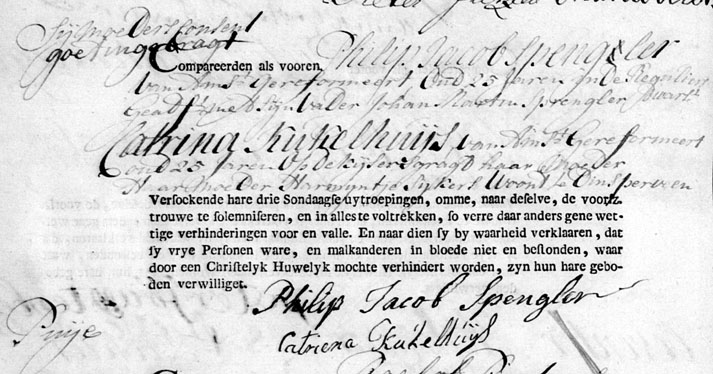 Sijn moeders Consent
goet ingebragt
Compareerden als vooren, Philip Jacob Spengler
van Amst Gereformeert Oud 25 Jaren in de Reguliers
Sijn Vader Johan Martin Sprengler
Catrina Kukelhuijs van Amst Gereformeert
oud 25 Jaren op de kijsersgragt haar
Haar moeder Harmyntje woont te Dinsperveen
Versoekende hare drie Sondaagse uytroepingen, omme, naar deselve, de voorsz.
trouwe te solemniseren, en in alles te voltrekken, so verre daar anders gene wet-
tige verhinderingen voor en valle. En naar dien sy by waarheid verklaaren, dat
sy vrye Personen ware, en malkanderen in bloede niet en bestonden, waar
door een Christelyk Huwelyk mochte verhindert worden, zyn hun hare gebo-
den verwilliget.
Philip Jacob Spengler
Puije
Catriena Kukelhuijs